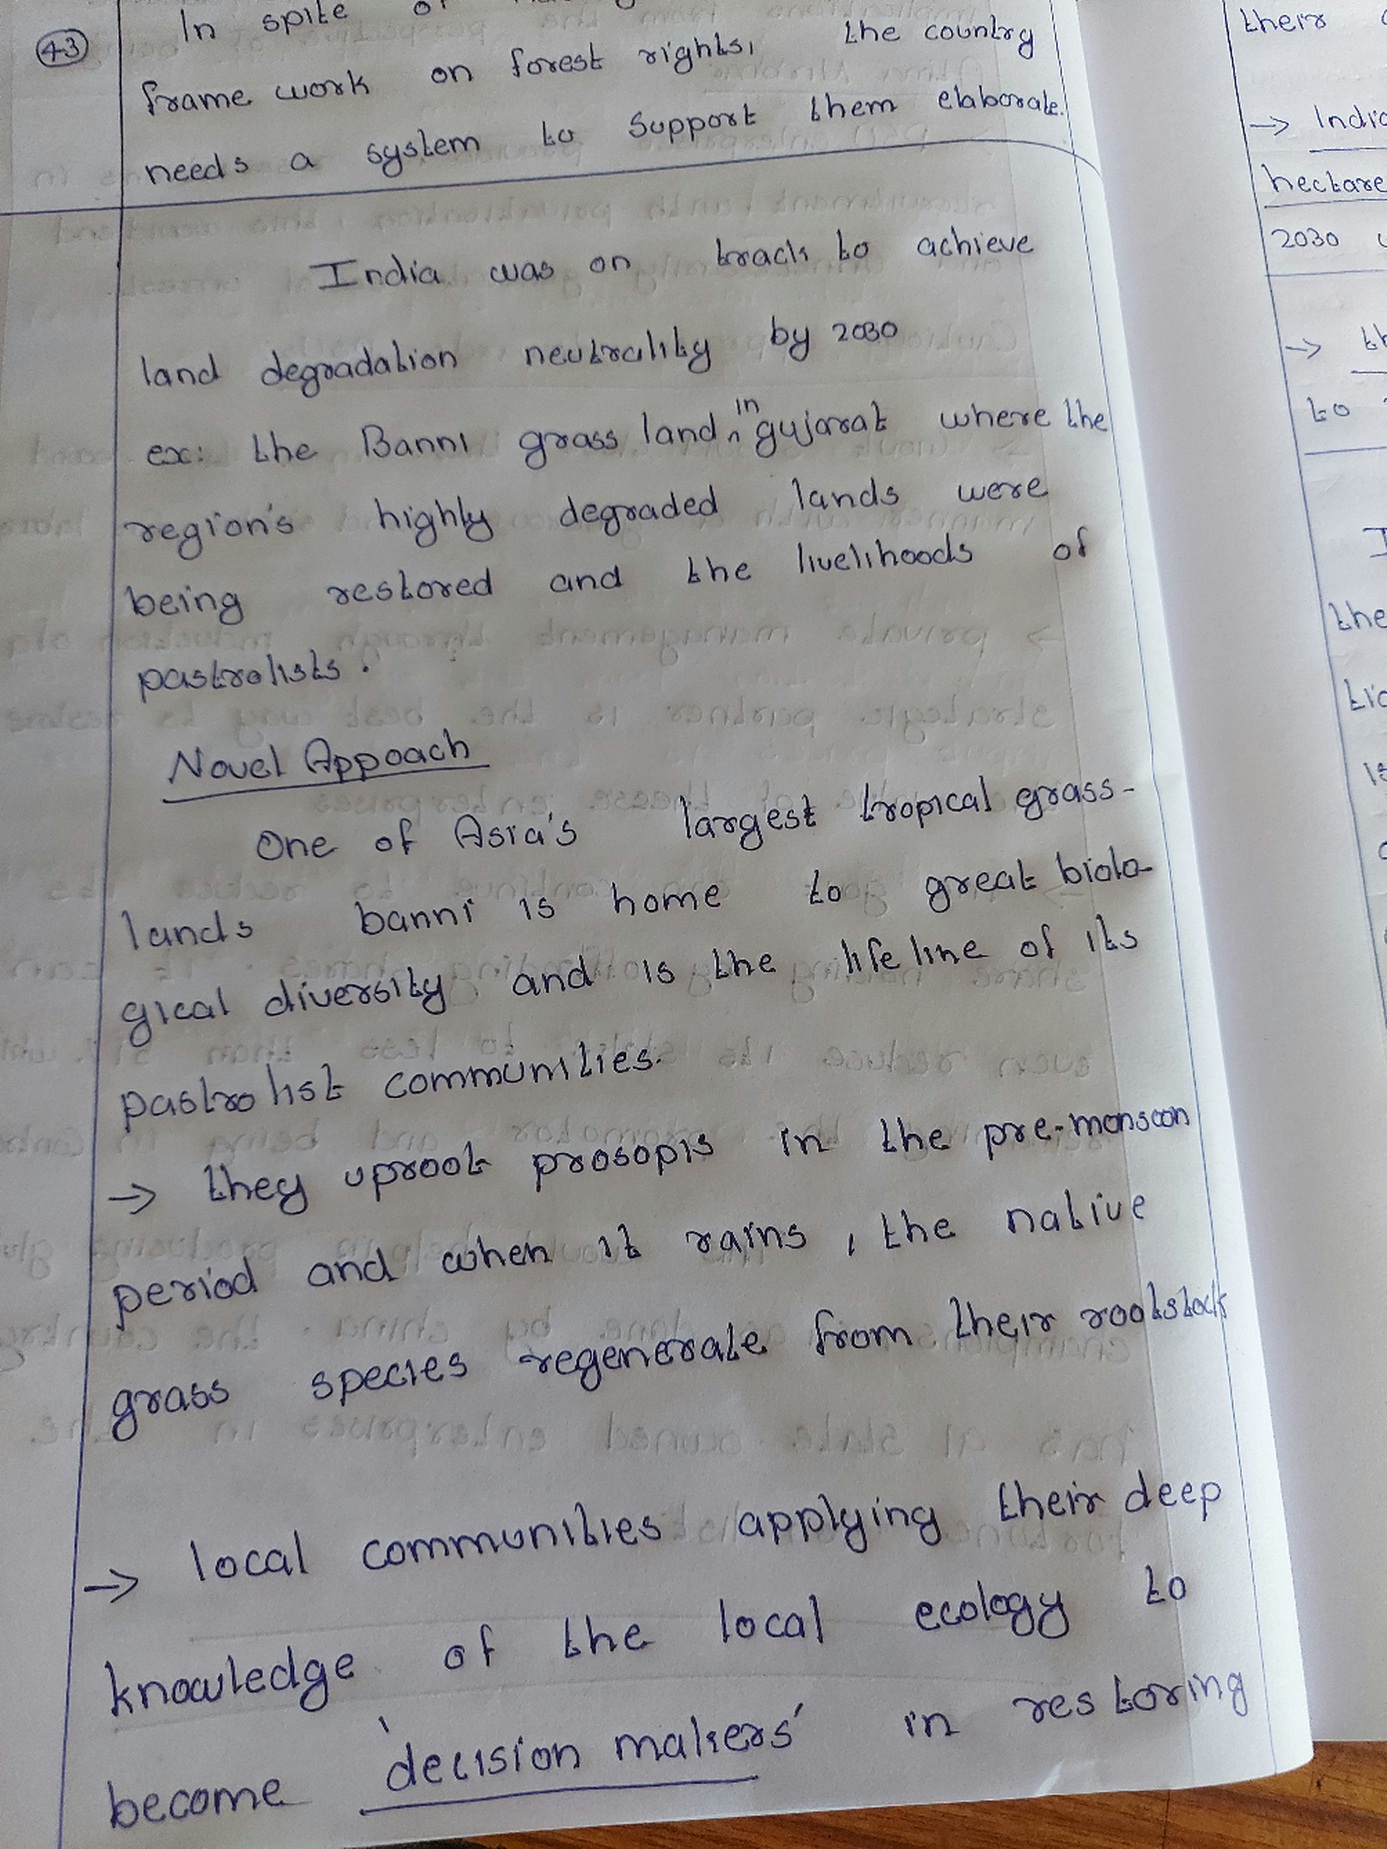 43
In spite of
frame work on forest rights, the country
needs a system to support them elaborate.
India was on track to achieve
land degradation neutrality by 2030
ex: the Banni grass land in gujarat where the
region's highly degraded lands were
being restored and the livelihoods of
pastrolists.
Novel Appoach
One of Asia's largest tropical grass-
lands banni is home to great biolo-
gical diversity and is the life line of its
pastrolist communities.
→ they uproot prosopis in the pre-monsoon
period and when it rains, the native
grass species regenerate from their rootstock
→ local communities applying their deep
knowledge of the local ecology to
become 'decision makers' in restoring
their
→ India
hectare
2030
→ th
to
the